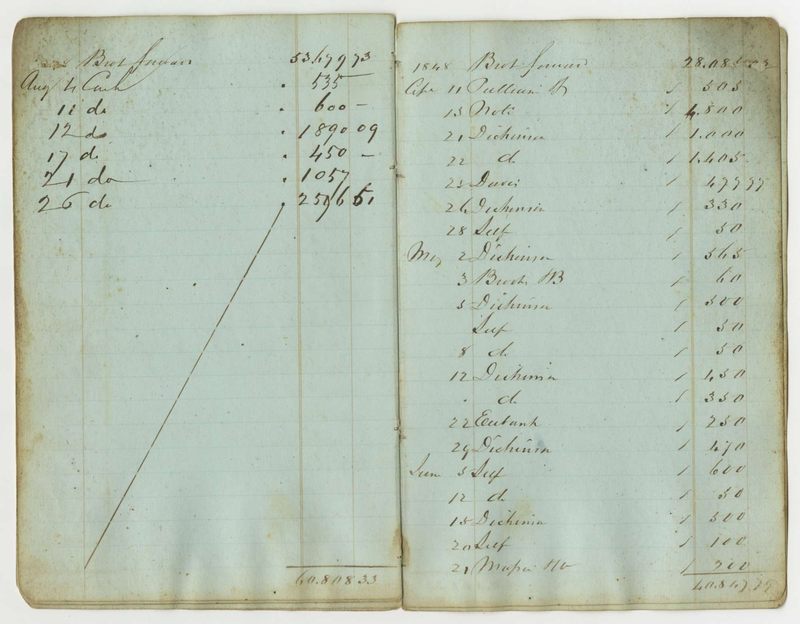 Brot forward 5367973
Aug 4 Cash 535
11 do 600 —
12 do 1890 09
17 do 450 —
21 do 1057
26 do
60.808 33
1848 Brot forward
11 Pulliam 505
15 Note 4.800
21 Dickinson 1.000
22 do 1.405
25 Davis
26 Dickinson 330
28 Self 50
May 2 Dickinson 565
3 60
5 Dickinson 500
Self 50
8 do 50
12 Dickinson 450
" do 350
22 Eubank 250
29 Dickinson 470
June 5 Self 600
12 do 50
15 Dickinson 500
20 Self 100
21